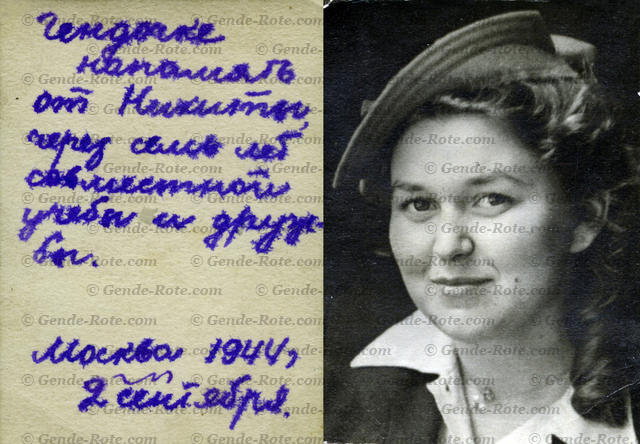 Гендочке
напамять
от Никиты,
через семь лет
совместной
учебы и друж-
бы.
Москва 1944,
2 сентября.
© Gende-Rote.com